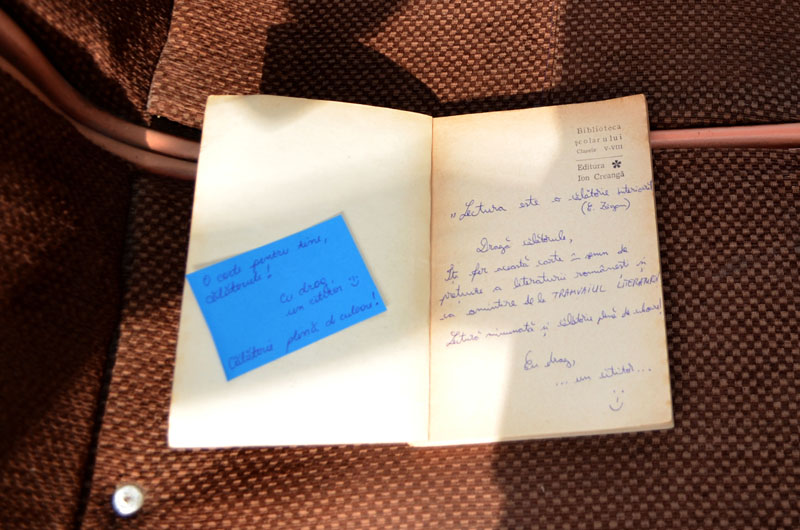 O carte pentru tine,
călătorule!
Cu drag,
un cititor :)
Călătorie plină de culoare!
Biblioteca
școlarului
Clasele V-VIII
Editura
Ion Creangă
„Lectura este o călătorie interioară"
Dragă călătorule,
Îți fer această carte în semn de
prețuire a literaturii românești și
ca amintire de la TRAMVAIUL LITERATURII
Lectură minunată și călătorie plină de culoare!
Cu drag,
... un cititor...
:)